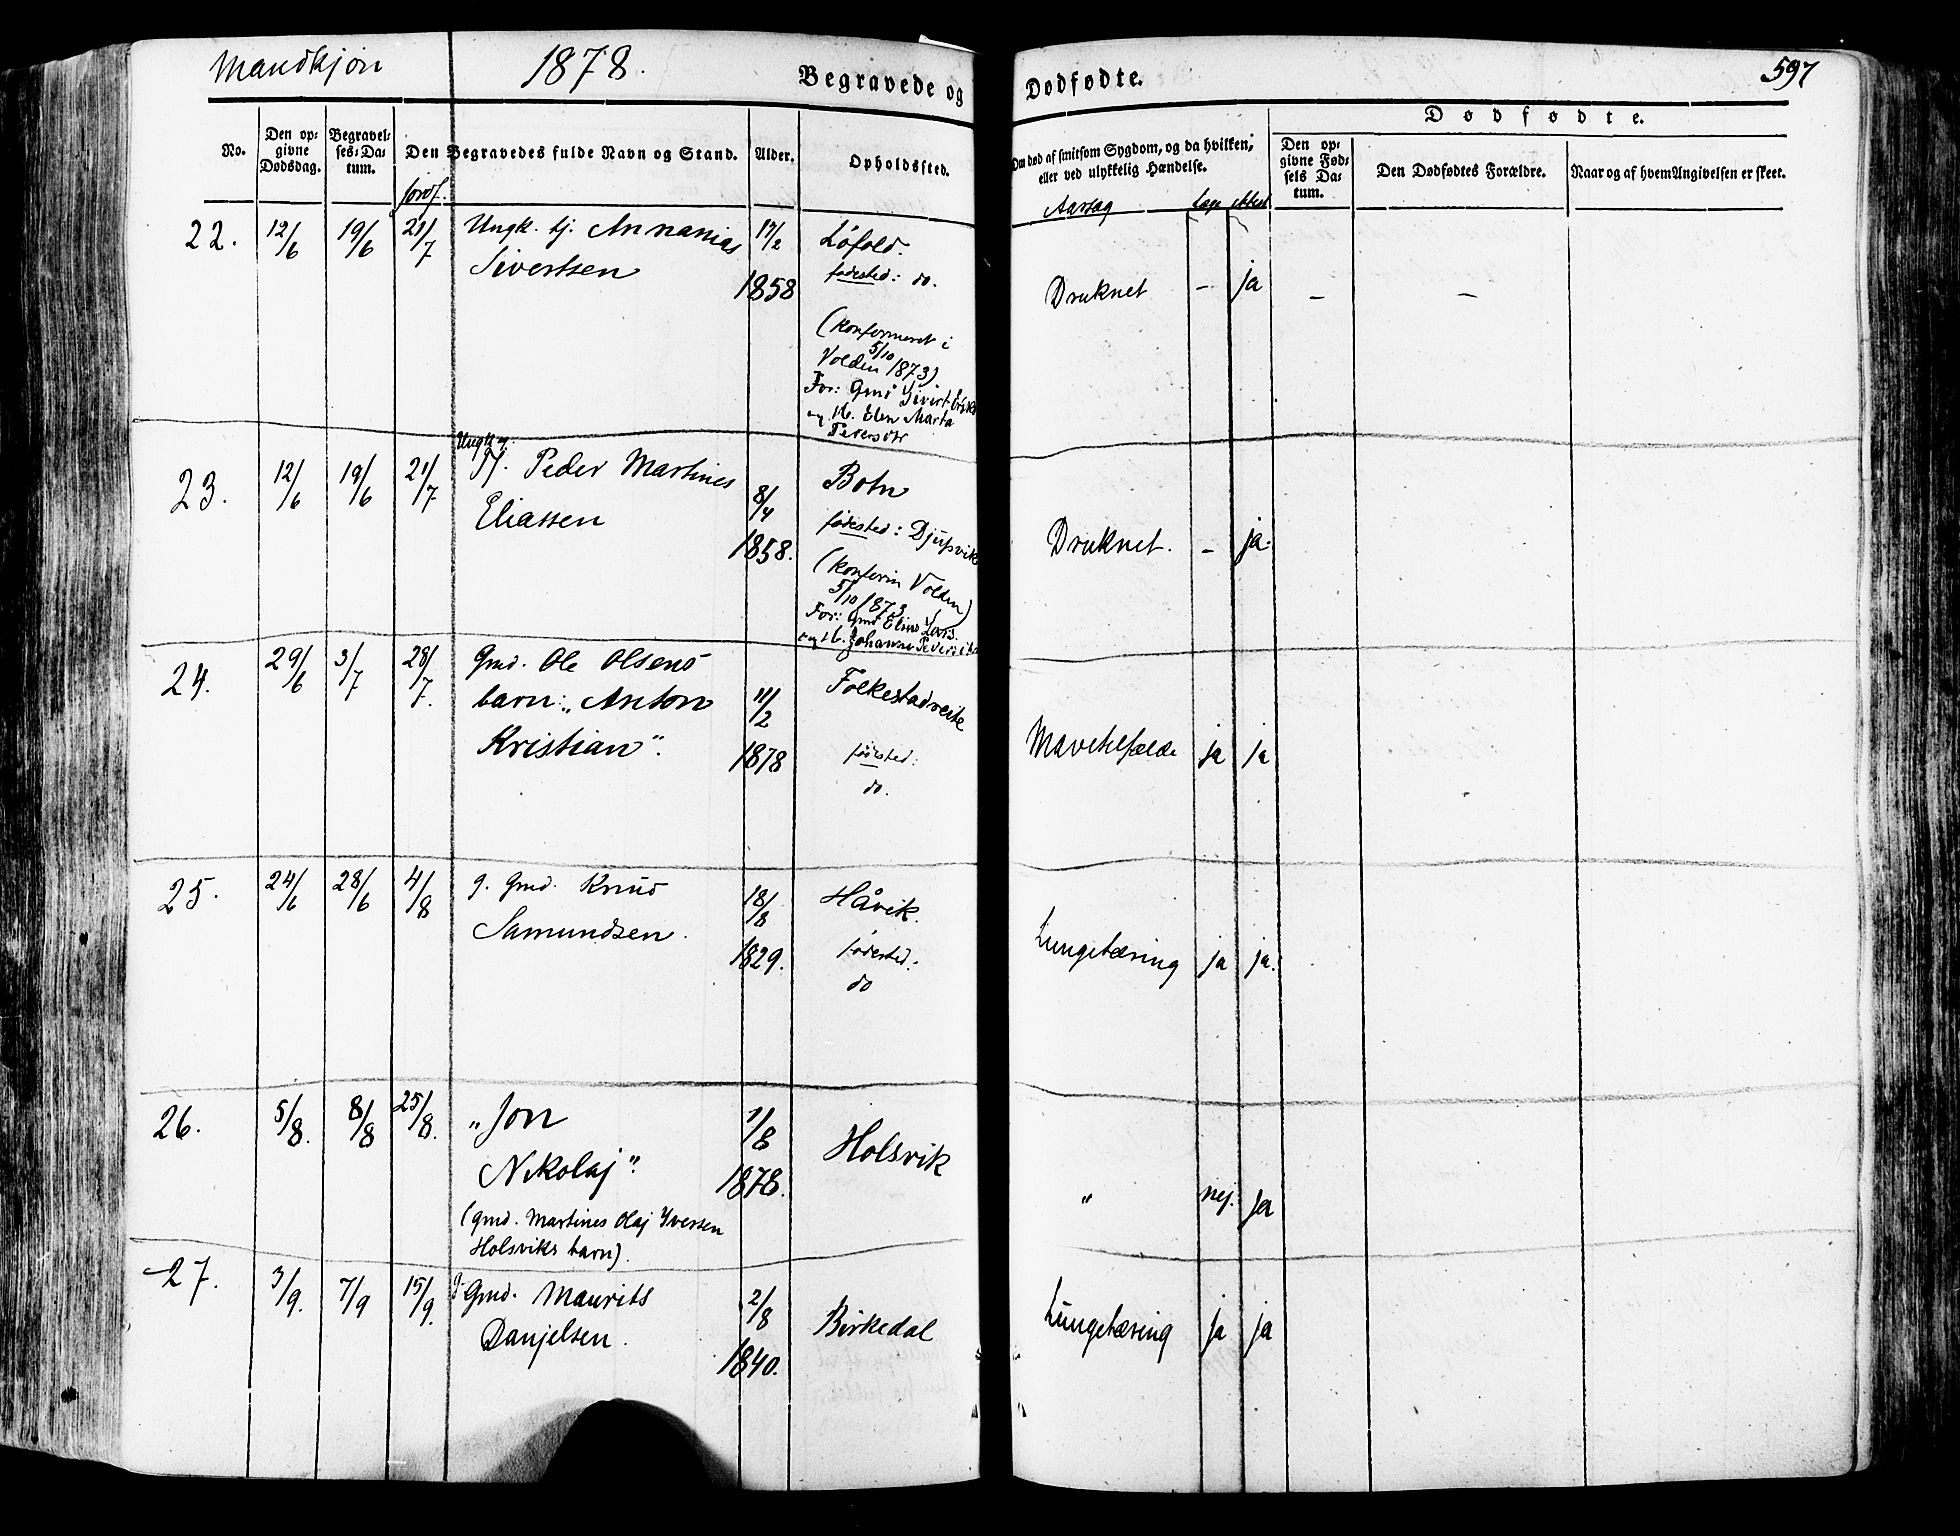 Mandkjön 1878. Begravede og Dødfødte. 597
Dødfødte.
No. Den opgivne Dødsdag. Begravelses-Datum. Jordf. Den Begravedes fulde Navn og Stand. Alder. Opholdssted. Om død af smitsom Sygdom, og da hvilken; eller ved ulykkelig Hændelse. Den opgivne Fødsels Datum. Den Dødfødtes Forældre. Naar og af hvem Angivelsen er skeet.
Aarsag læge attest
22. 12/6 19/6 21/7 Ungk. tj. Annanias 17/2 Løfold.
Sivertsen 1858 fødested: do. Druknet – ja – –
(Konfirmeret i
5/10
Volden 1873)
For: Gmd Sivert
og H. Elen Marta
Pedersdr
Ungk
23. 12/6 19/6 21/7 Tj. Peder Martines 8/4 Botn
Eliassen 1858. fødested: Djupvik Druknet. – ja.
(Konfer in Volden)
5/10 1873
For: Gmd Elias
og H. Johanne
24. 29/6 3/7 28/7. Gmd. Ole Olsens
barn: „Anton 11/2 Folkestadreite
Kristian". 1878 fødested: Mavetilfælde ja ja
do.
25. 24/6 28/6 4/8 g. Gmd. Knud 18/8 Håvik.
Samundsen. 1829. fødested: Lungetæring ja ja.
do
26. 5/8. 8/8 25/8. „Jon 1/8 Holsvik
Nikolaj". 1878. „ nej. ja
(Gmd. Martines Olaj Iversen
Holsviks barn).
27. 3/9. 7/9 15/9. g. Gmd. Maurits 2/8 Birkedal
Danjelsen. 1840. Lungetæring ja ja